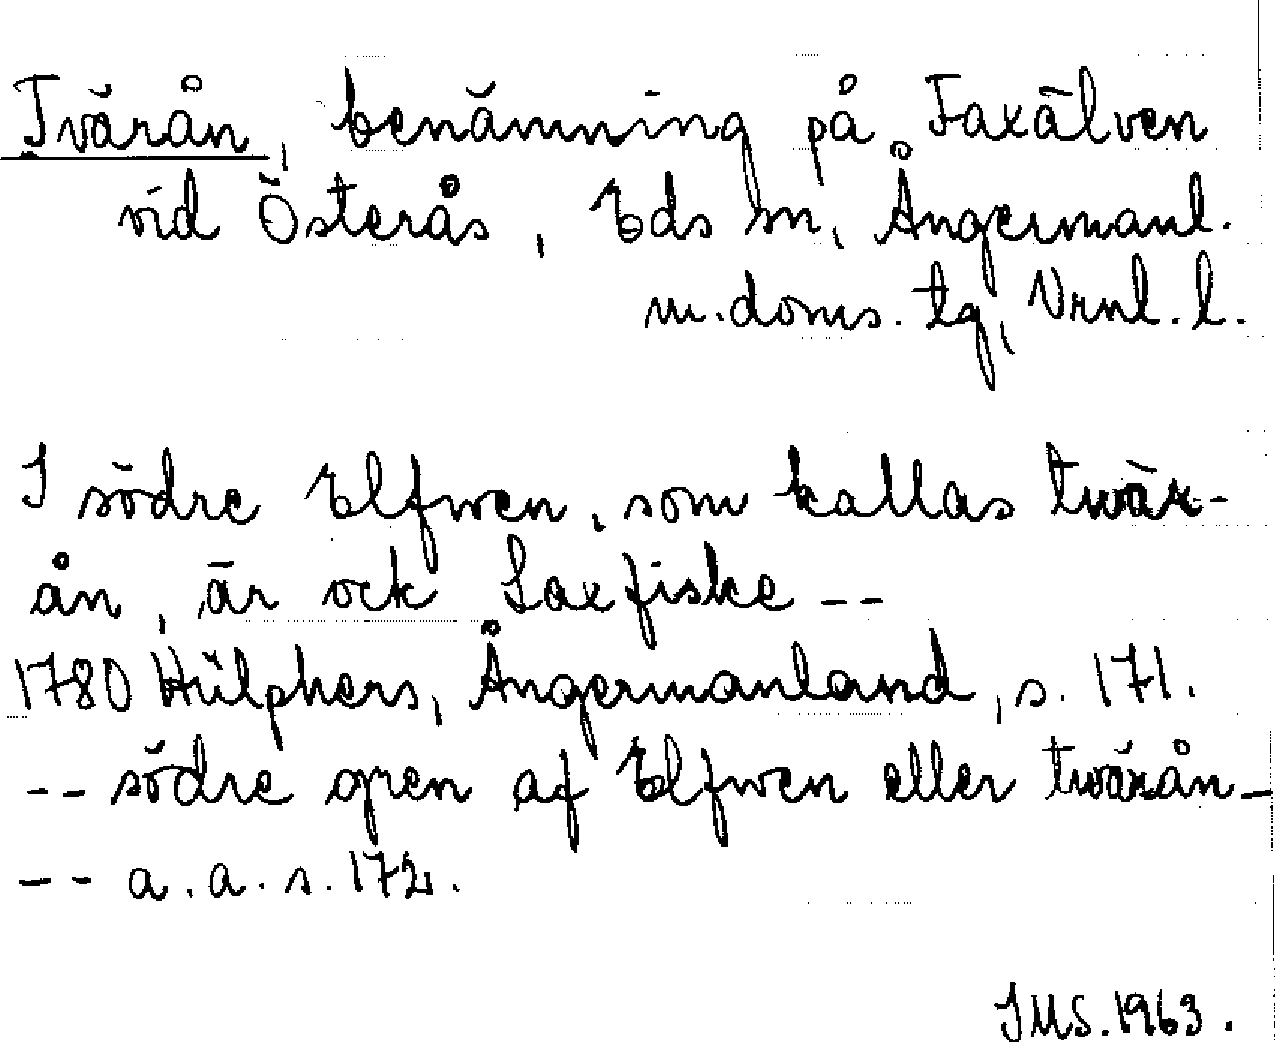 Tvärån, benämning på Faxälven
vid Österås, Eds sn, Ångermanl.
m. doms. tg, Vrnl. l.
I södre Elfwen, som kallas twär-
ån, är ock Laxfiske --
1780 Hülphers, Ångermanland, s. 171.
-- södre gren af Elfwen eller twärån -
-- a. a. s. 172.
JMS. 1963.